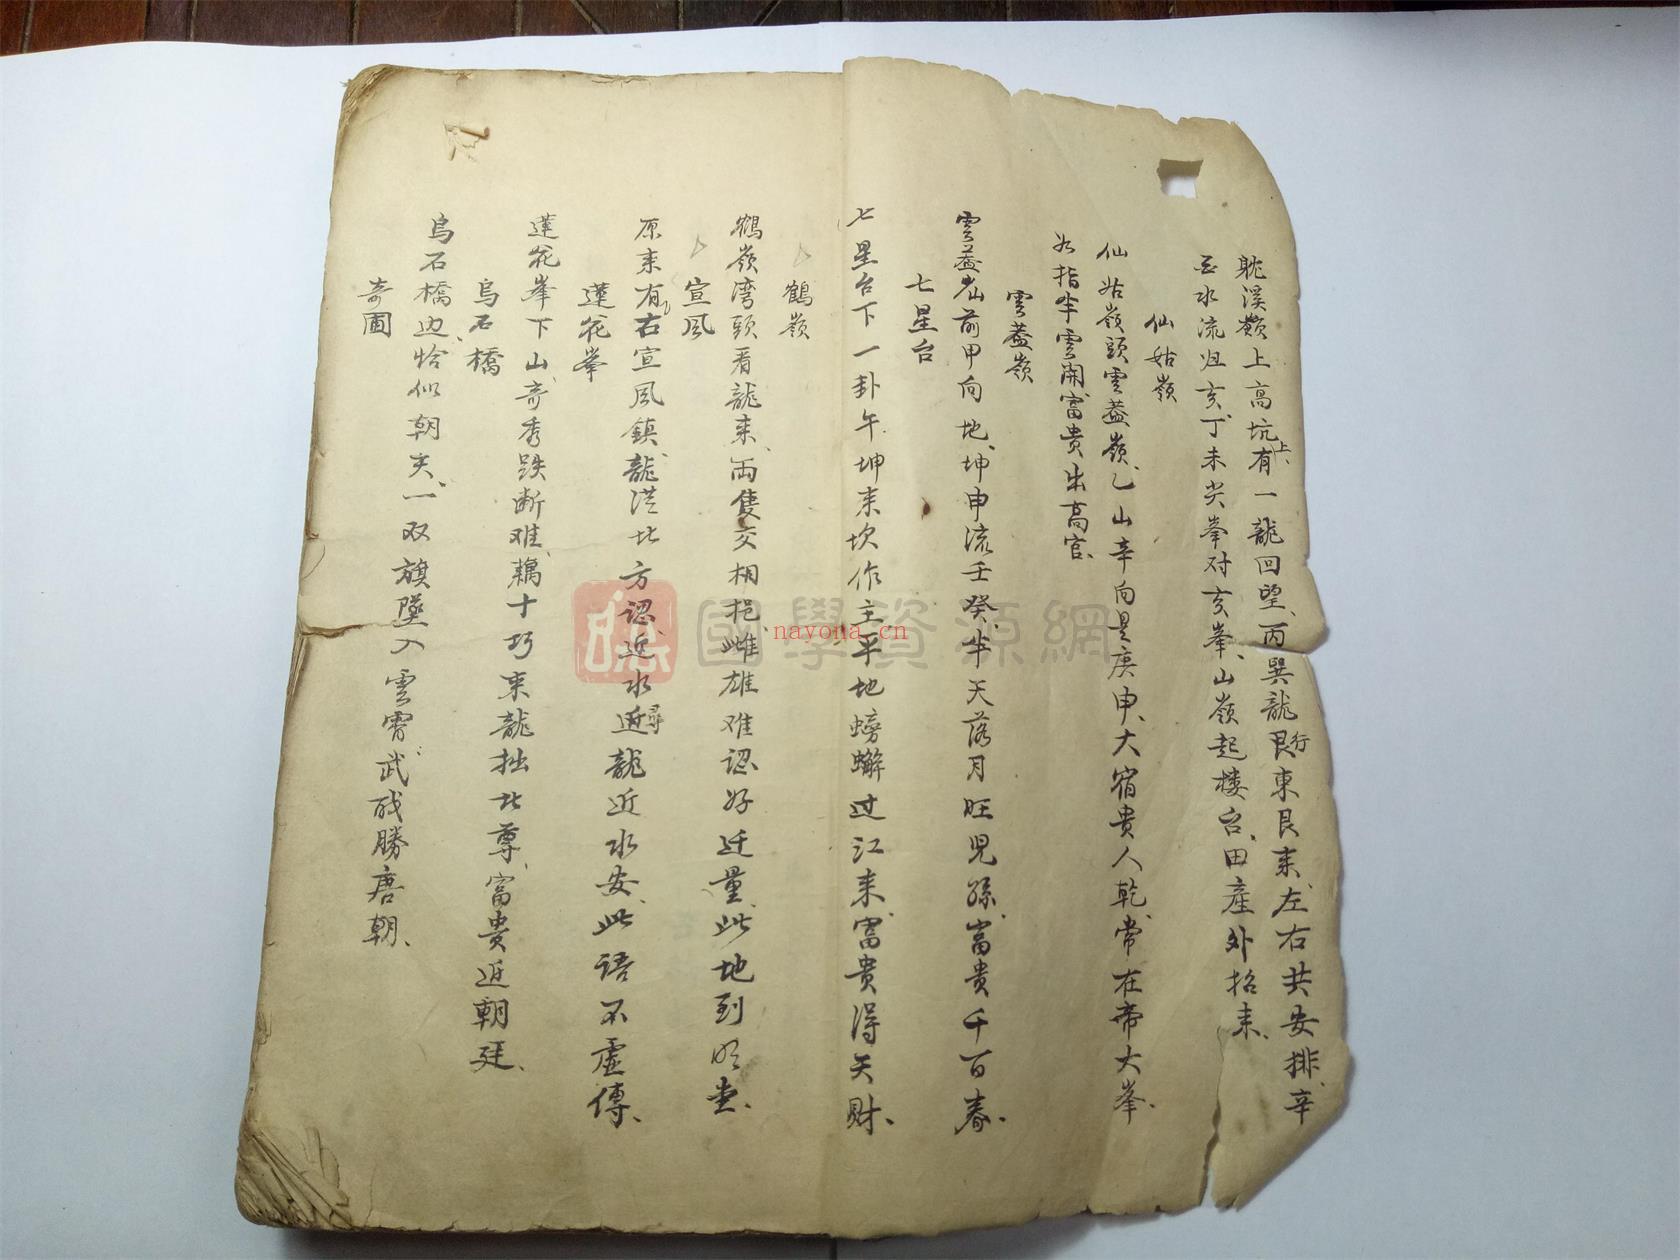 躭溪嶺上高坑上有一龍回望、丙巽龍行艮東艮来、左右共安排、辛
水流归亥、丁未尖峯对亥峯、山嶺起楼台、田產外招来、
仙姑嶺
仙姑嶺頭雲蓋嶺、乙山辛向是庚申、大宿貴人乾、常在帝大峯、
指半雲開富貴出高官、
雲蓋嶺
雲蓋山前甲向地、坤申流壬癸、半天落月旺児孫、富貴千百春、
七星台
七星台下一卦午坤来坎作主平地螃蠏过江来、富貴得天財、
鶴嶺
鶴嶺湾頭看龍来、両隻交相挹、雌雄难認好迁量、此地到明堂、
宣風
原来有右宣風鎮、龍洪北方認近水尋近龍近水安、此语不虛傳、
蓮花峯
蓮花峯下山奇秀跌断难、藕十巧来龍拙北尊、富貴近朝廷、
烏石橋
烏石橋边、恰似朝天、一双旗墜入雲霄武战勝唐朝、
奇圃
國學資源網
nayona.cn